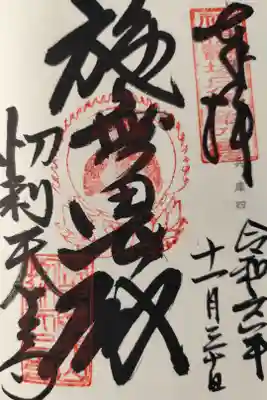 奉拝
庫四
令和六年
十一月三十日
施無畏殿
忉利天上寺